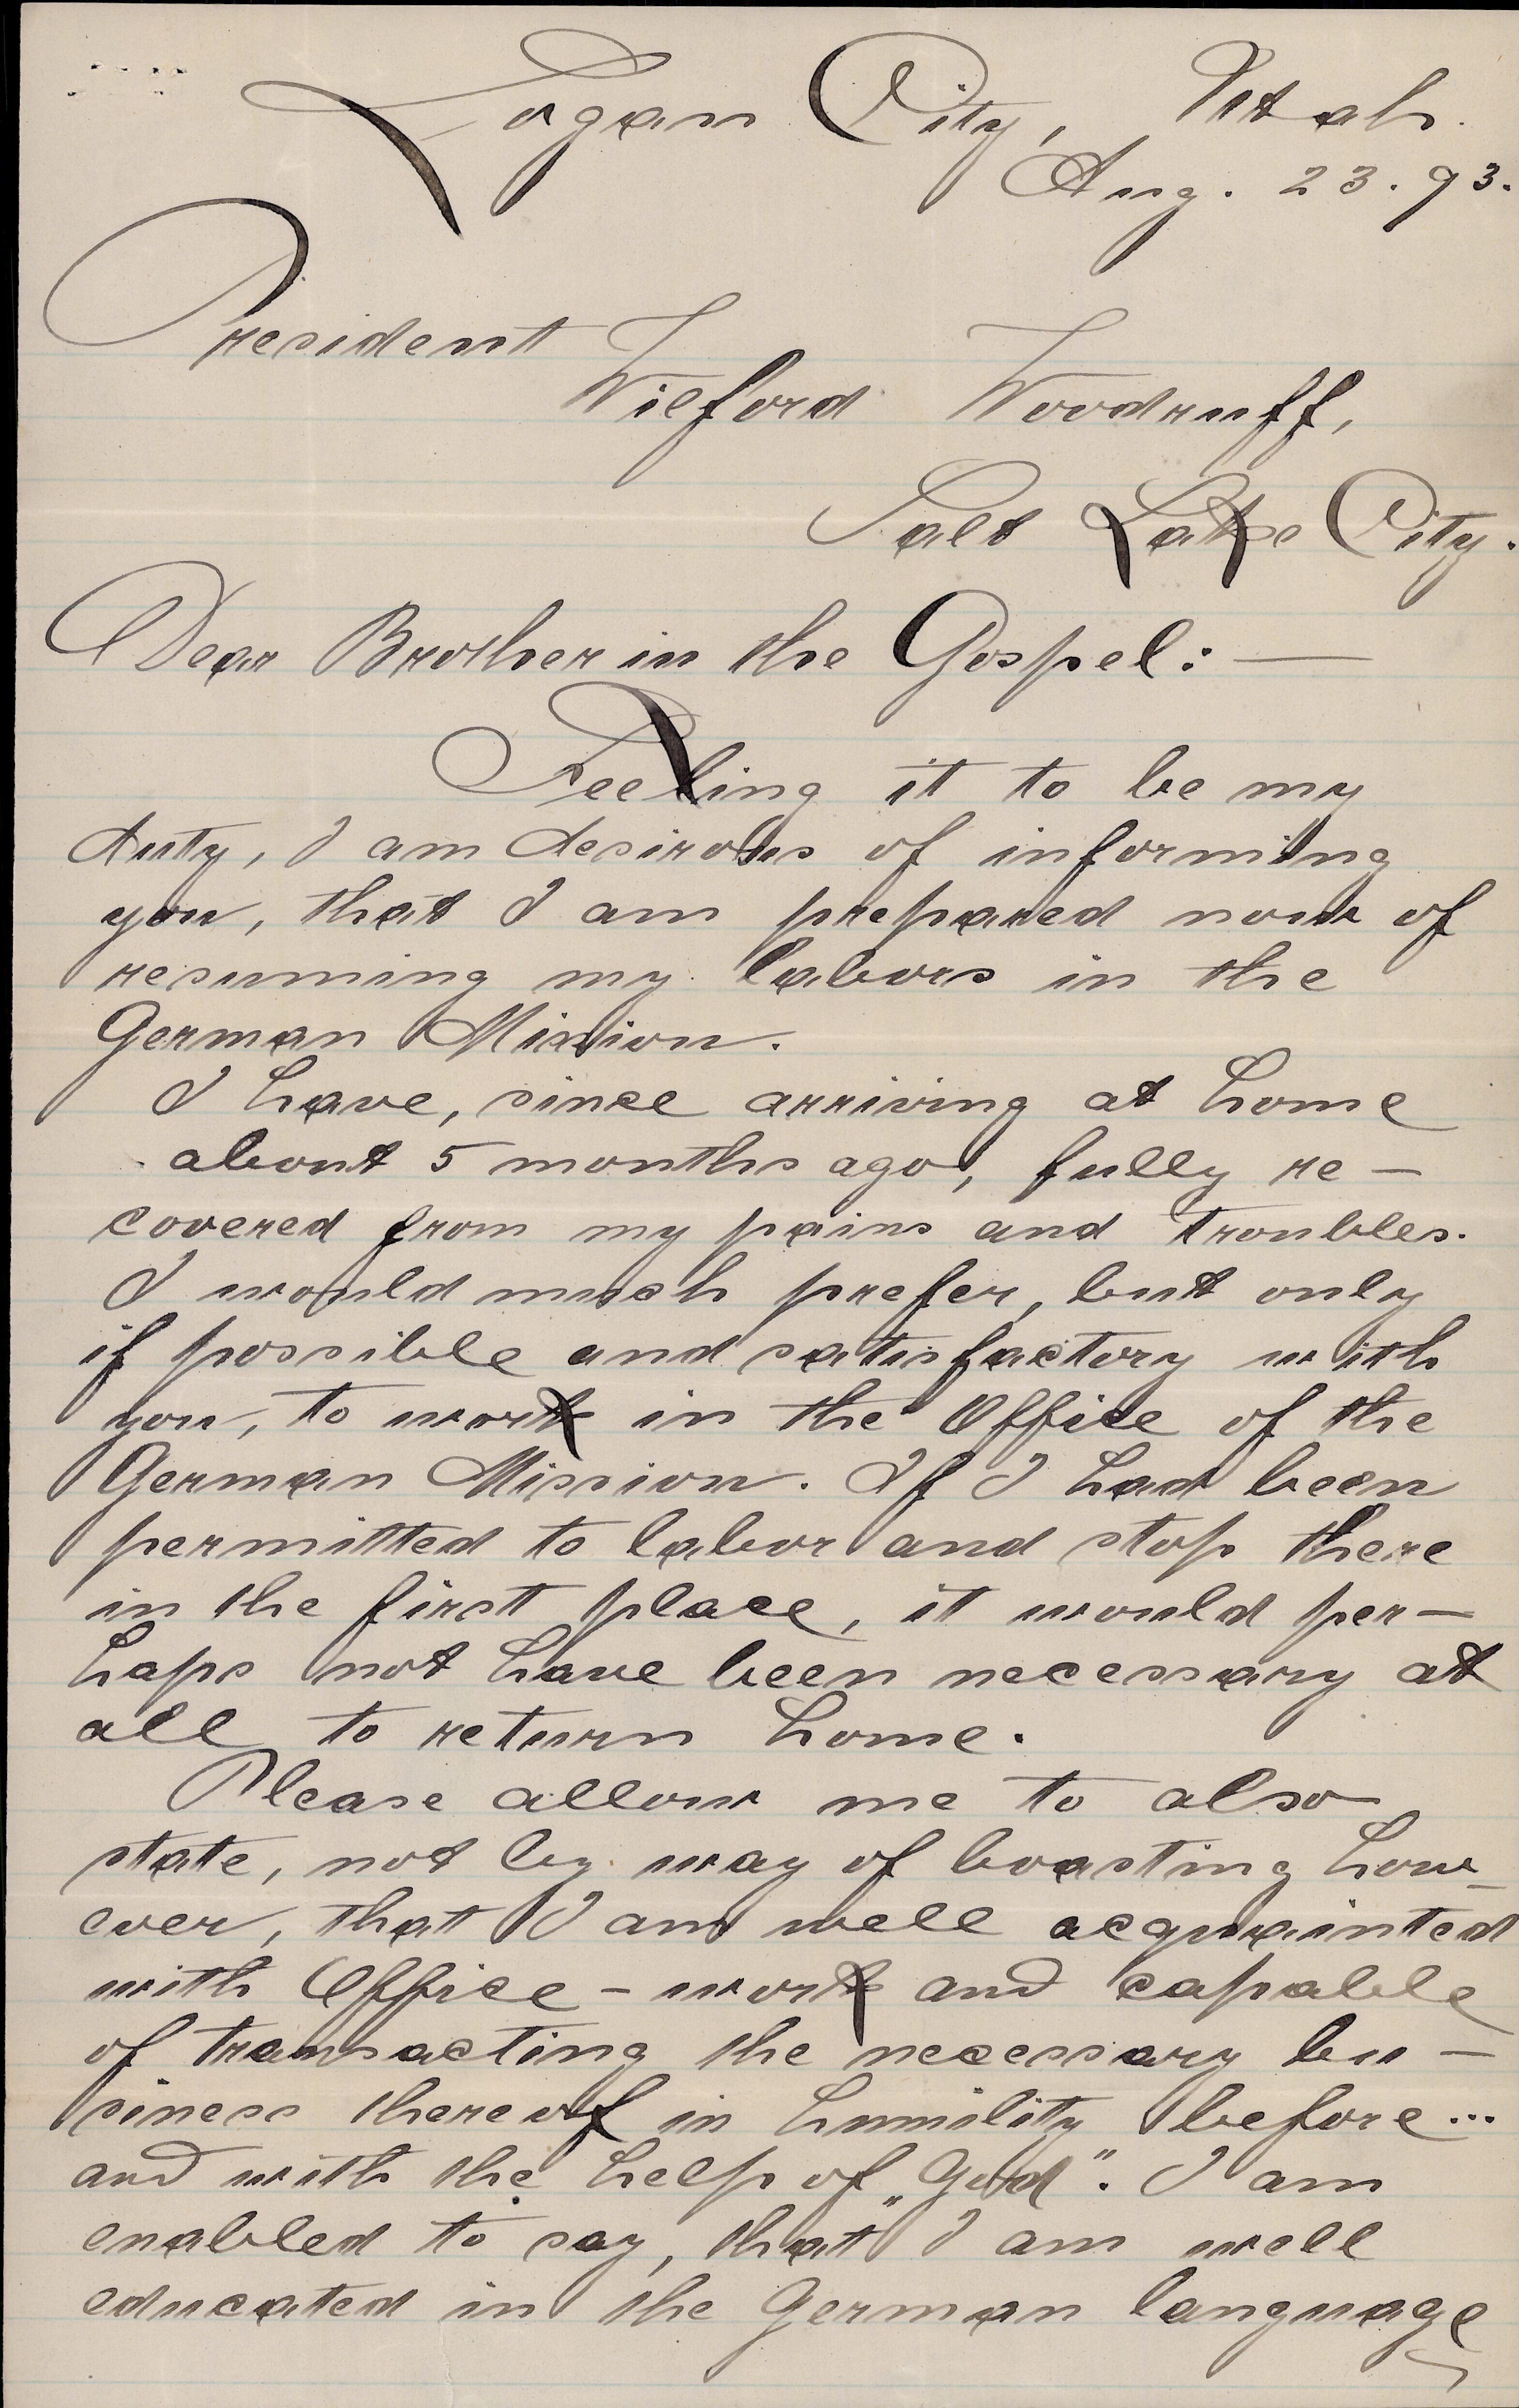 Logan City, Utah.
Aug. 23. 93.
President
Wilford Woodruff,
Salt Lake City.
Dear Brother in the Gospel: —
Feeling it to be my
duty, I am desirous of informing
you, that I am prepared now of
resuming my labors in the
German Mission.
I have, since arriving at home
about 5 months ago, fully re-
covered from my pains and troubles.
I would much prefer, but only
if possible and satisfactory with
you, to work in the Office of the
German Mission. If I had been
permitted to labor and stop there
in the first place, it would per-
haps not have been necessary at
all to return home.
Please allow me to also
state, not by way of boasting how-
ever, that I am well acquainted
with Office-work and capable
of transacting the necessary bu-
siness thereof in humility before...
and with the help of „God". I am
enabled to say, that I am well
educated in the German language